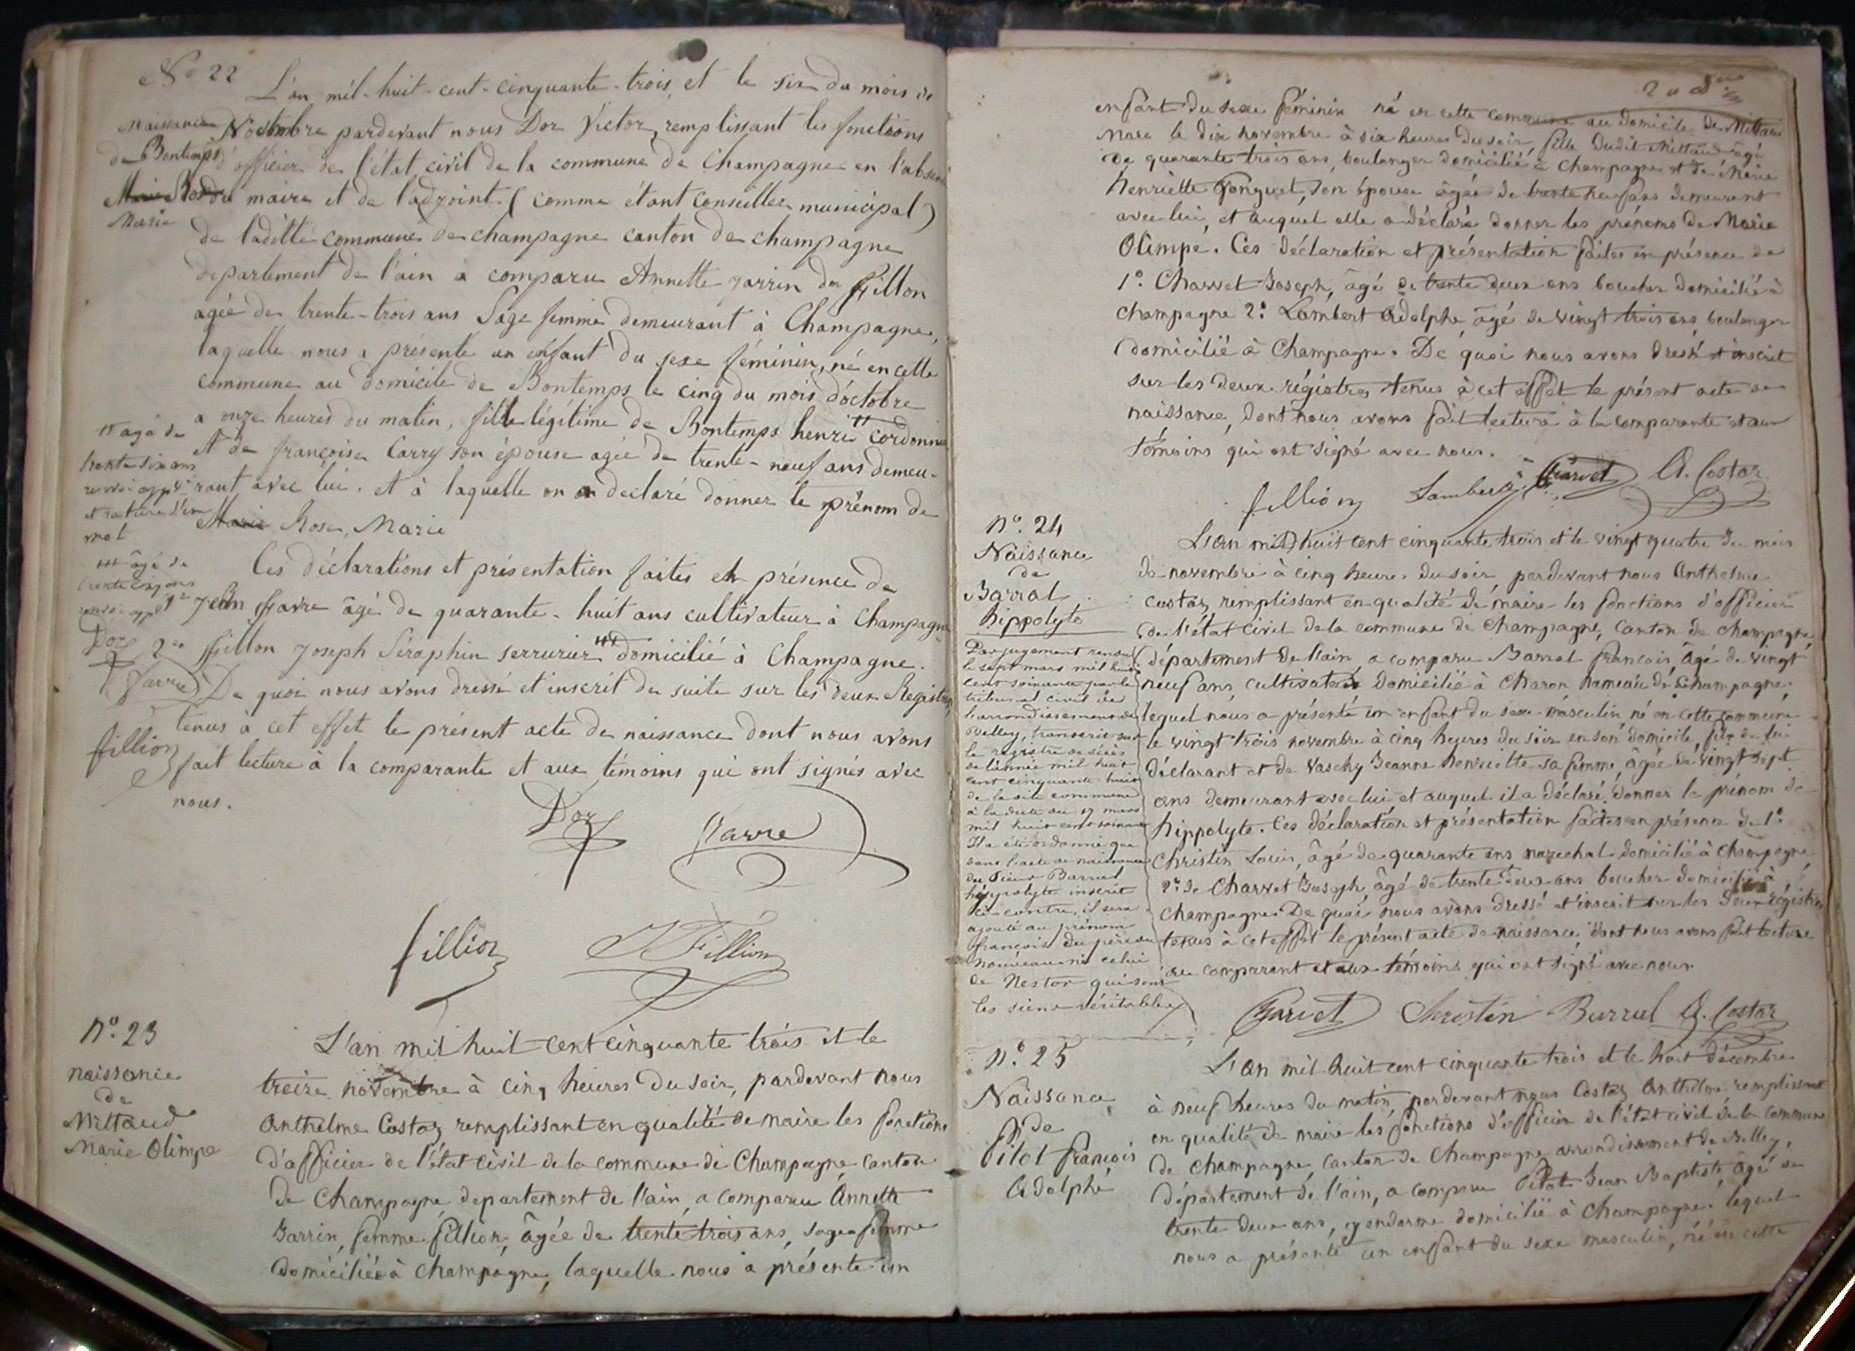 No 22
L'an mil-huit-cent-cinquante-trois et le six du mois de
Naissance
de Bontemps
Marie Rose
Marie
Novembre pardevant nous Dor Victor, remplissant les fonctions
d'officier de l'état civil de la commune de Champagne en l'absence
du maire et de l'adjoint (comme étant conseiller municipal)
de ladite commune de champagne canton de champagne
departement de l'ain a comparu Annette Jarrin dm fillon
agée de trente-trois ans Sage femme demeurant à Champagne,
laquelle nous a presenté un enfant du sexe féminin, né en cette
commune au domicile de Bontemps le cinq du mois d'octobre
a onze heures du matin, fille légitime de Bontemps henri cordonnier
et de françoise Carry son épouse agée de trente-neuf ans demeu-
rant avec lui. et à laquelle on a declaré donner le prénom de
Marie Rose, Marie
agé de
trente six ans
renvoi appr
et rature d'un
mot
Ces déclarations et présentation faites en présence de
1er Jean favre âgé de quarante-huit ans cultivateur à Champagne
2e fillon Joseph Séraphin serrurier domicilié à Champagne.
De quoi nous avons dressé et inscrit de suite sur les deux Registres
tenus à cet effet le présent acte de naissance dont nous avons
fait lecture à la comparante et aux témoins qui ont signés avec
nous.
âgé de
Dor
favre
fillion
Dor favre
fillion JFillion
No. 23
naissance
de
Mittaud
Marie Olimpe
L'an mil huit cent cinquante trois et le
treize novembre à cinq heures du soir, pardevant nous
Anthelme Costaz remplissant en qualité de maire les fonctions
d'officier de l'état civil de la commune de Champagne canton
de Champagne, departement de l'ain, a comparu Annette
Jarrin, femme fillion, âgée de trente trois ans, sage femme
domiciliée à champagne, laquelle nous a présenté un
enfant du sexe féminin né en cette commune au domicile de Mittaud
Marc le dix novembre à six heures du soir, fille dudit Mittaud âgé
de quarante trois ans, boulanger domicilié à Champagne et de Marie
henriette Gonguet, son épouse âgée de trente neuf ans demeurant
avec lui, et auquel elle a déclaré donner les prénoms de Marie
Olimpe. Ces déclaration et présentation faites en présence de
1o. Charvet Joseph, âgé de trente deux ans boucher domicilié à
champagne 2o. Lambert Adolphe âgé de vingt trois ans boulanger
domicilié à Champagne. De quoi nous avons dressé et inscrit
sur les deux régistres tenus à cet effet le présent acte de
naissance, dont nous avons fait lecture à la comparante et aux
témoins qui ont signé avec nous.
fillion Lambert Charvet A. Costaz
No. 24
Naissance
de
Barral
hippolyte
L'an mil huit cent cinquante trois et le vingt quatre du mois
de novembre à cinq heures du soir, pardevant nous Anthelme
Costaz, remplissant en qualité de maire les fonctions d'officier
de l'état civil de la commune de Champagne, canton de champagne,
département de l'ain, a comparu Barral francois, âgé de vingt
neuf ans, cultivateur domicilié à Charon hameau de Champagne,
lequel nous a présenté un enfant du sexe masculin né en cette commune
le vingt trois novembre à cinq heures du soir en son domicile, fils de lui
déclarant et de Vaschy Jeanne henriette sa femme, âgée de vingt sept
ans demeurant avec lui et auquel il a déclaré donner le prénom de
hippolyte. Ces déclaration et présentation faites en présence de 1o.
Christin Louis, âgé de quarante ans marechal domicilié à champagne
2o. de Charvet Joseph, âgé de trente deux ans boucher domicilié à
champagne. De quoi nous avons dressé et inscrit sur les deux régistres
tenus à cet effet le présent acte de naissance, dont nous avons fait lecture
au comparant et aux témoins qui ont signé avec nous
Par jugement rendu
le sept mars mil huit
cent soixante par le
tribunal civil de
l'arrondissement de
Belley, transcrit sur
le registre de décès
de l'année mil huit
cent cinquante huit
de la dite commune
à la date du 17 mars
mil huit cent soixante
Il a été ordonné que
dans l'acte de naissance
du sieur Barral
hippolyte inscrit
ci-contre, il sera
ajouté au prénom
françois du père du
nouveau né celui
de Nestor qui sont
les siens véritables
Charvet Christin Barral A. Costaz
No. 25
Naissance
de
Pitot françois
Adolphe
L'an mil huit cent cinquante trois et le huit décembre
à neuf heures du matin, pardevant nous Costaz Anthelme remplissant
en qualité de maire les fonctions d'officier de l'état civil de la commune
de champagne, canton de Champagne, arrondissement de Belley,
département de l'ain, a comparu Pitot Jean Baptiste, âgé de
trente deux ans, gendarme domicilié à Champagne lequel
nous a présenté un enfant du sexe masculin, né en cette